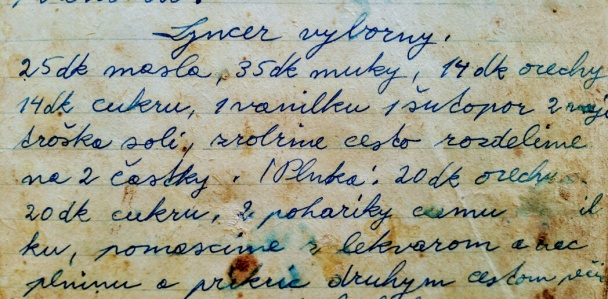 Lyncer vyborny.
25dk masla, 35dk muky, 14dk orechy
14dk cukru, 1 vanilku 1 šutopor 2
troška soli, zrobime cesto rozdelime
na 2 částky. 1 Plnka: 20dk orechu
20dk cukru, 2 pohariky cumu
ku, pomascime z lekvarom a
plninu a prikric druhym cestom